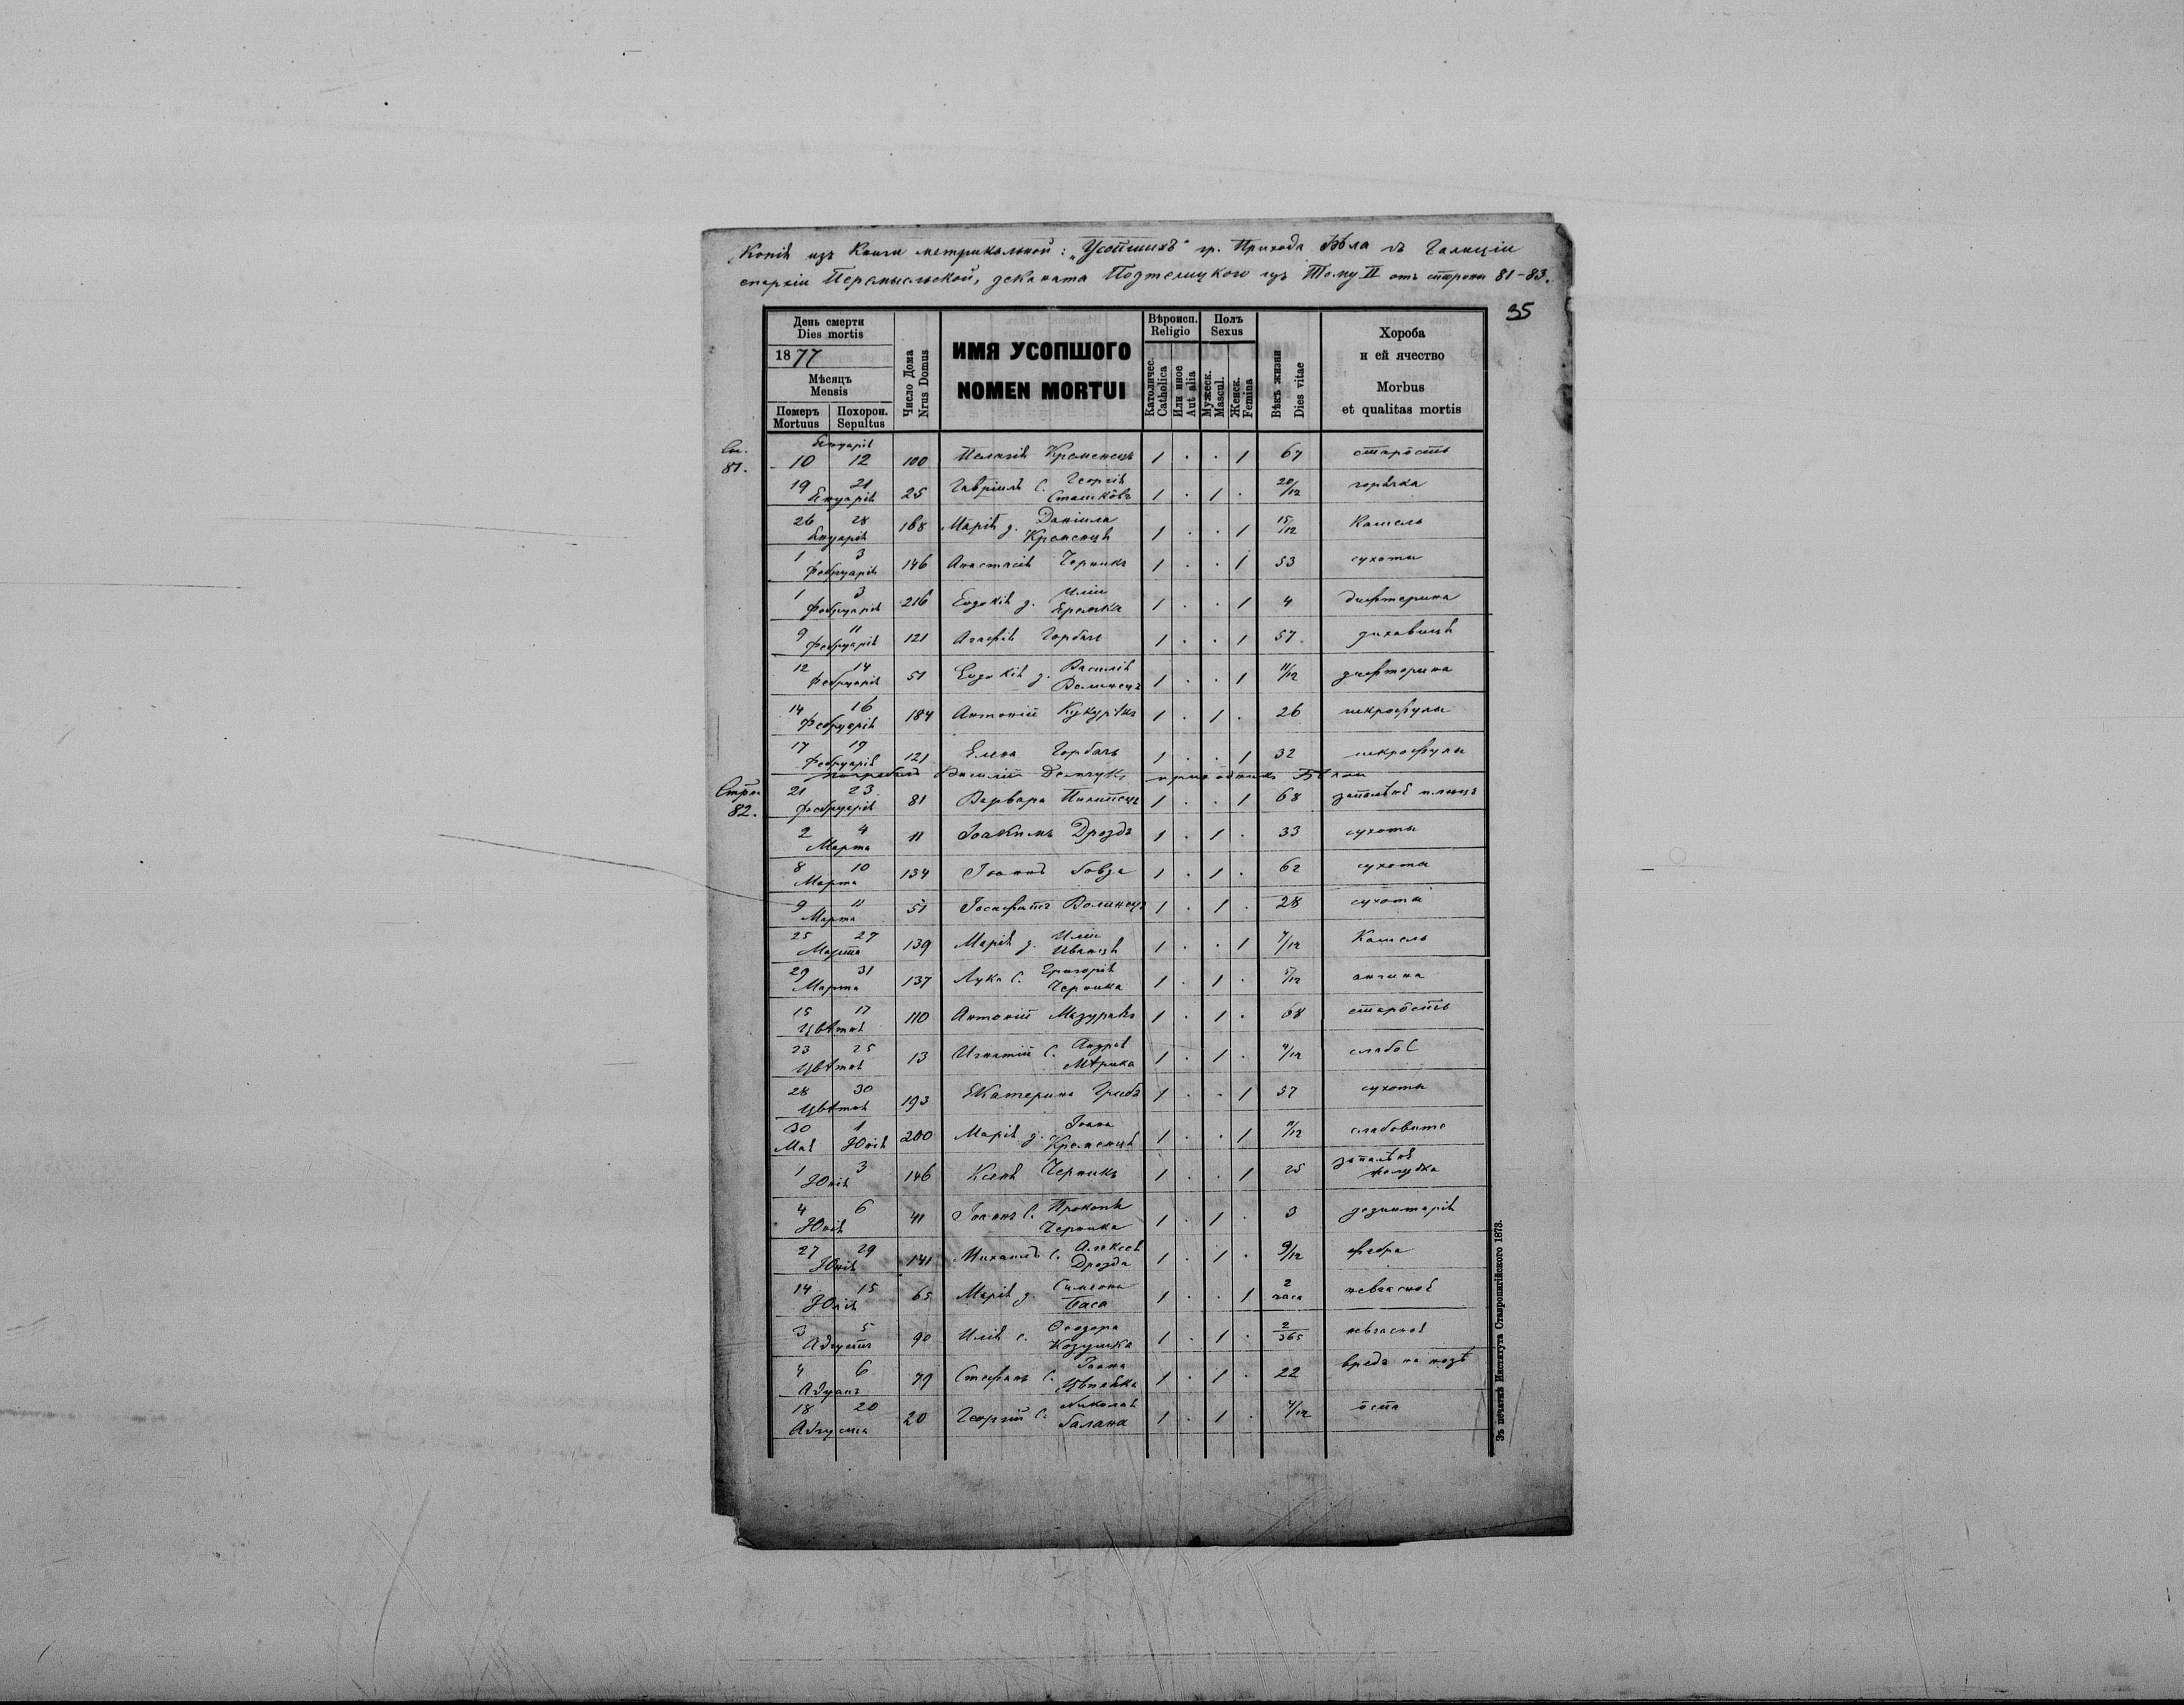 Копія изъ Книги метрикальной: „Усопшихъ" гр. Прихода Бѣла въ Галиціи
епархіи Перемысльской, деканата Потелицкого изъ Тому II отъ стороны 81-83.
35
День смерти
Dies mortis
1877
Мѣсяцъ
Mensis
Померъ Mortuus
Похорон. Sepultus
Число Дома
Nrus Domus
ИМЯ УСОПШОГО
NOMEN MORTUI
Вѣроисп.
Religio
Католичес.
Catholica
Или иное
Aut alia
Полъ
Sexus
Мужеск.
Mascul.
Женск.
Femina
Вѣкъ жизни
Dies vitae
Хороба
и ей ячество
Morbus
et qualitas mortis
81.
Януарія
10 12 100 Пелагія Кременецъ 1 . . 1 67 старôсть
19 21 Януарія 25 Гавріилъ с. Георгія Сташкôвъ 1 . 1 . 20/12 горячка
26 28 Януарія 168 Марія д. Даніила Кременця 1 . . 1 15/12 Кашель
1 3 Фебруарія 146 Анастасія Черникъ 1 . . 1 53 сухоты
1 3 Фебруарія 216 Евдокія д. Иліи 1 . . 1 4 дифтерина
9 11 Фебруарія 121 Агафія Горбачъ 1 . . 1 57 дихавиця
12 14 Фебруарія 51 Евдокія д. Василія Волинець 1 . . 1 11/12 дифтерина
14 16 Фебруарія 184 Антоній 1 . 1 . 26 шкрофулы
17 19 Фебруарія 121 Елена Горбачъ 1 . . 1 32 шкрофулы
Василій
Стрн. 82.
21 23 Фебруарія 81 Варвара Пилипецъ 1 . . 1 68
2 4 Марта 11 Іоакимъ Дроздъ 1 . 1 . 33 сухоты
8 10 Марта 134 Іоаннъ 1 . 1 . 62 сухоты
9 11 Марта 51 Іосафатъ Волинецъ 1 . 1 . 28 сухоты
25 27 Марта 139 Марія д. Иліи Иванця 1 . . 1 7/12 Кашель
29 31 Марта 137 Лука с. Григорія Черника 1 . 1 . 5/12 ангина
15 17 Цвѣтня 110 Антоній Мазуракъ 1 . 1 . 68 старôсть
23 25 Цвѣтня 13 Игнатій с. Андрея 1 . 1 . 4/12
28 30 Цвѣтня 193 Екатерина Грибъ 1 . . 1 57 сухоты
30 1 Мая Юнія 200 Марія д. Іоана Кременця 1 . . 1 слабовите
1 3 Юнія 146 Ксеня Черникъ 1 . . 1 25 желудка
4 6 Юнія 41 Іоаннъ с. Прокопія Черника 1 . 1 . 3 дезинтерія
27 29 Юнія 141 Михаилъ с. Алексея Дрозда 1 . 1 . 9/12 фебра
14 15 65 Марія д. Симеона Баса 1 . . 1 2 часа невчасноє
3 5 Августъ 90 Илія с. Феодора Козушка 1 . 1 . 2/365 невчасноє
4 6 79 Стефанъ с. Іоана 1 . 1 . 22 вредъ на нозѣ
18 20 Августа 20 Георгій с. Николая Галана 1 . 1 . 4/12 ôспа
Зъ печатнѣ Института Ставропигійского 1873.